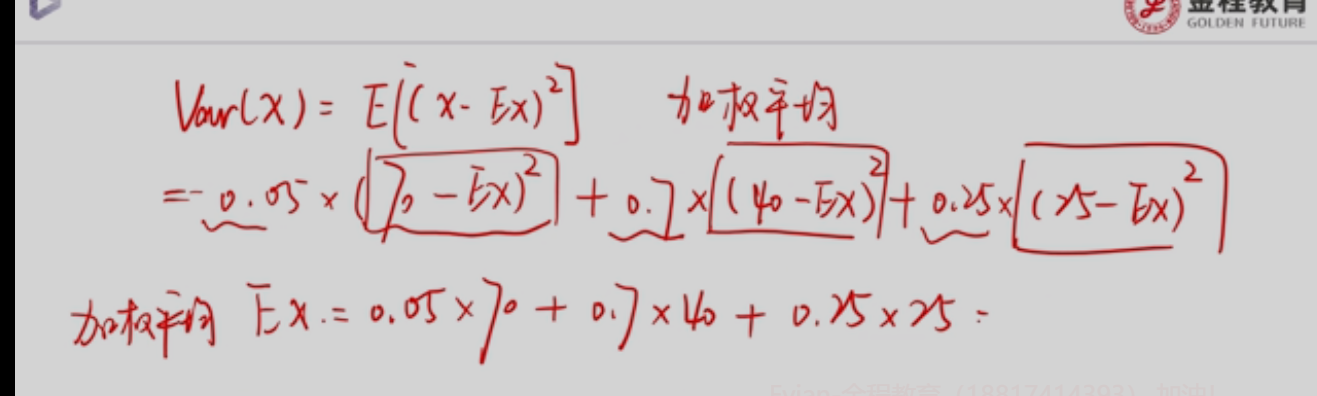 金程教育
GOLDEN FUTURE
Var(X) = E[(X - EX)²] 加权平均
= 0.05 × (70 - EX)² + 0.7 × (40 - EX)² + 0.25 × (25 - EX)²
加权平均 EX = 0.05 × 70 + 0.7 × 40 + 0.25 × 25 =
Fujan 金程教育 (18817414393) 加油!